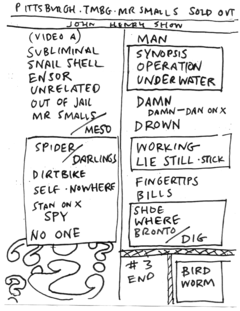 PITTSBURGH · TMBG · MR SMALLS SOLD OUT
JOHN HENRY SHOW
(VIDEO A)
SUBLIMINAL
SNAIL SHELL
ENSOR
UNRELATED
OUT OF JAIL
MR SMALLS
/ MESO
SPIDER /
DARLINGS
DIRTBIKE
SELF · NOWHERE
STAN ON X
SPY
NO ONE
MAN
SYNOPSIS
OPERATION
UNDERWATER
DAMN
DAMN - DAN ON X
DROWN
WORKING
LIE STILL · STICK
FINGERTIPS
BILLS
SHOE
WHERE
BRONTO /
DIG
#3
END
BIRD
WORM